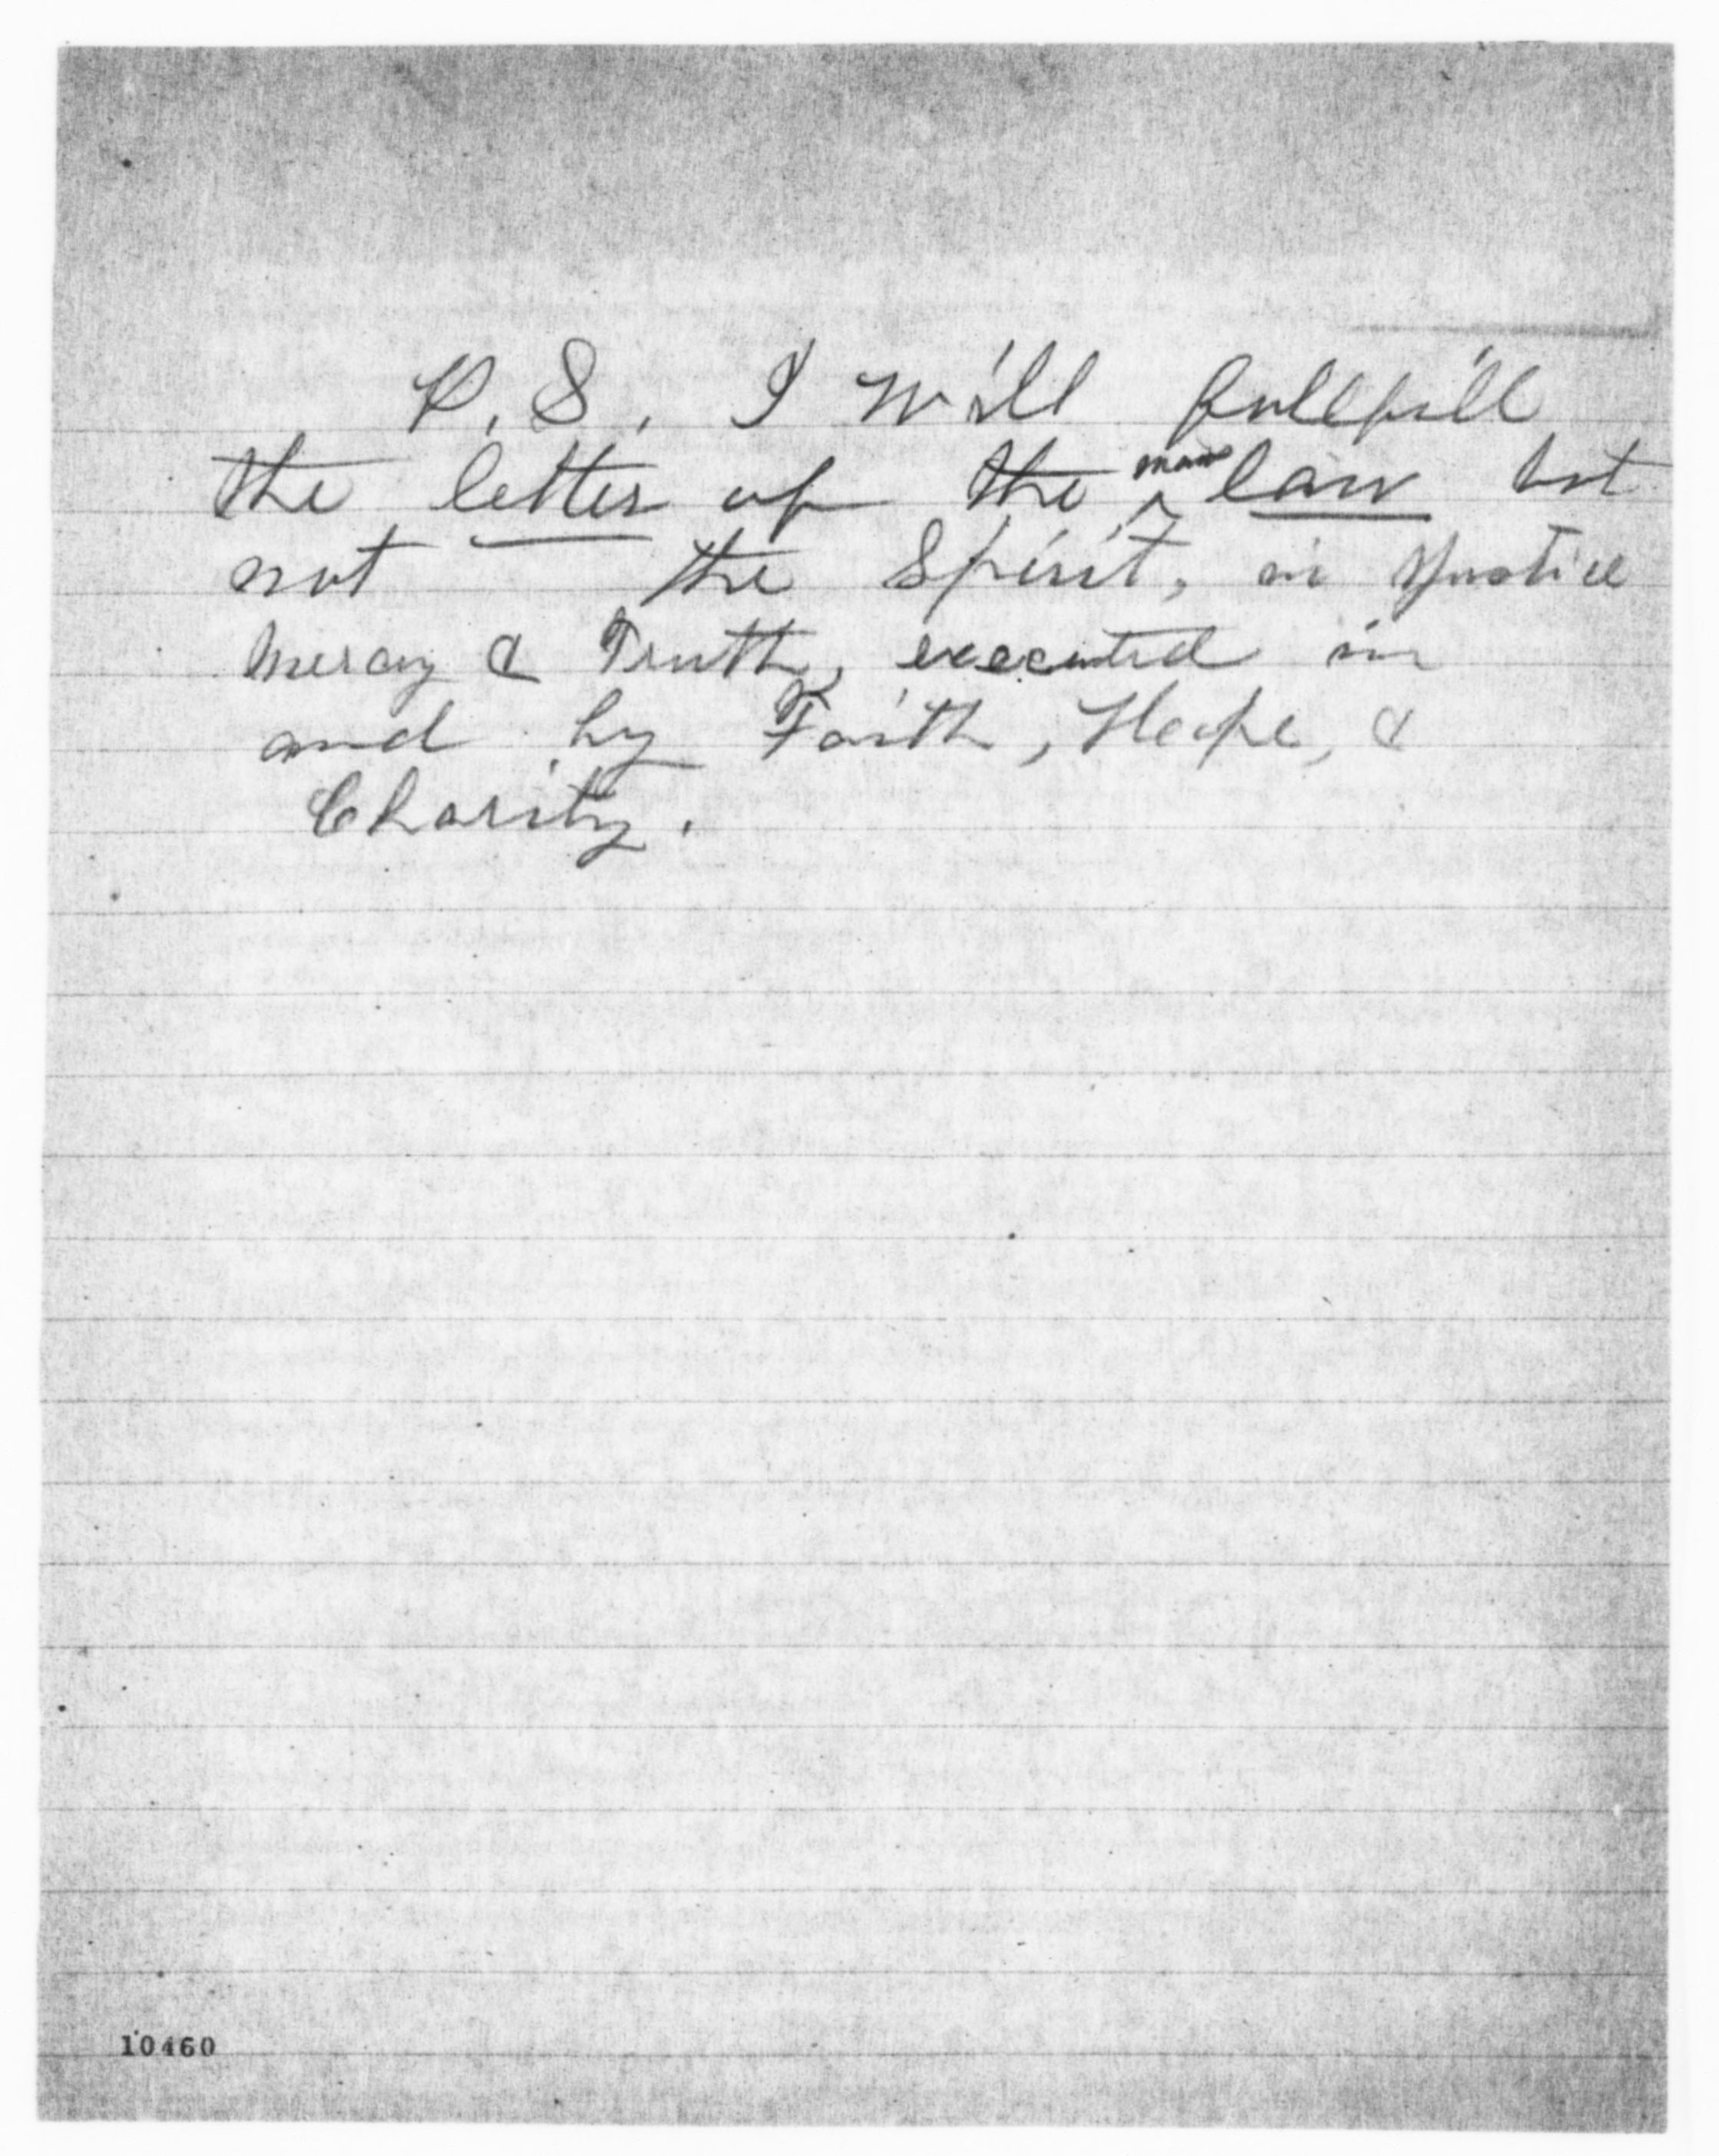 P. S. I will fullfill
the letter of the mans law but
not the Spirit, in Justice
Mercy & Truth, executed in
and by Faith, Hope, &
Charity.
10460